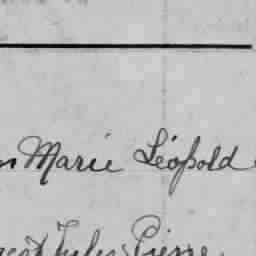 Marie Léopold
Jules Pierre